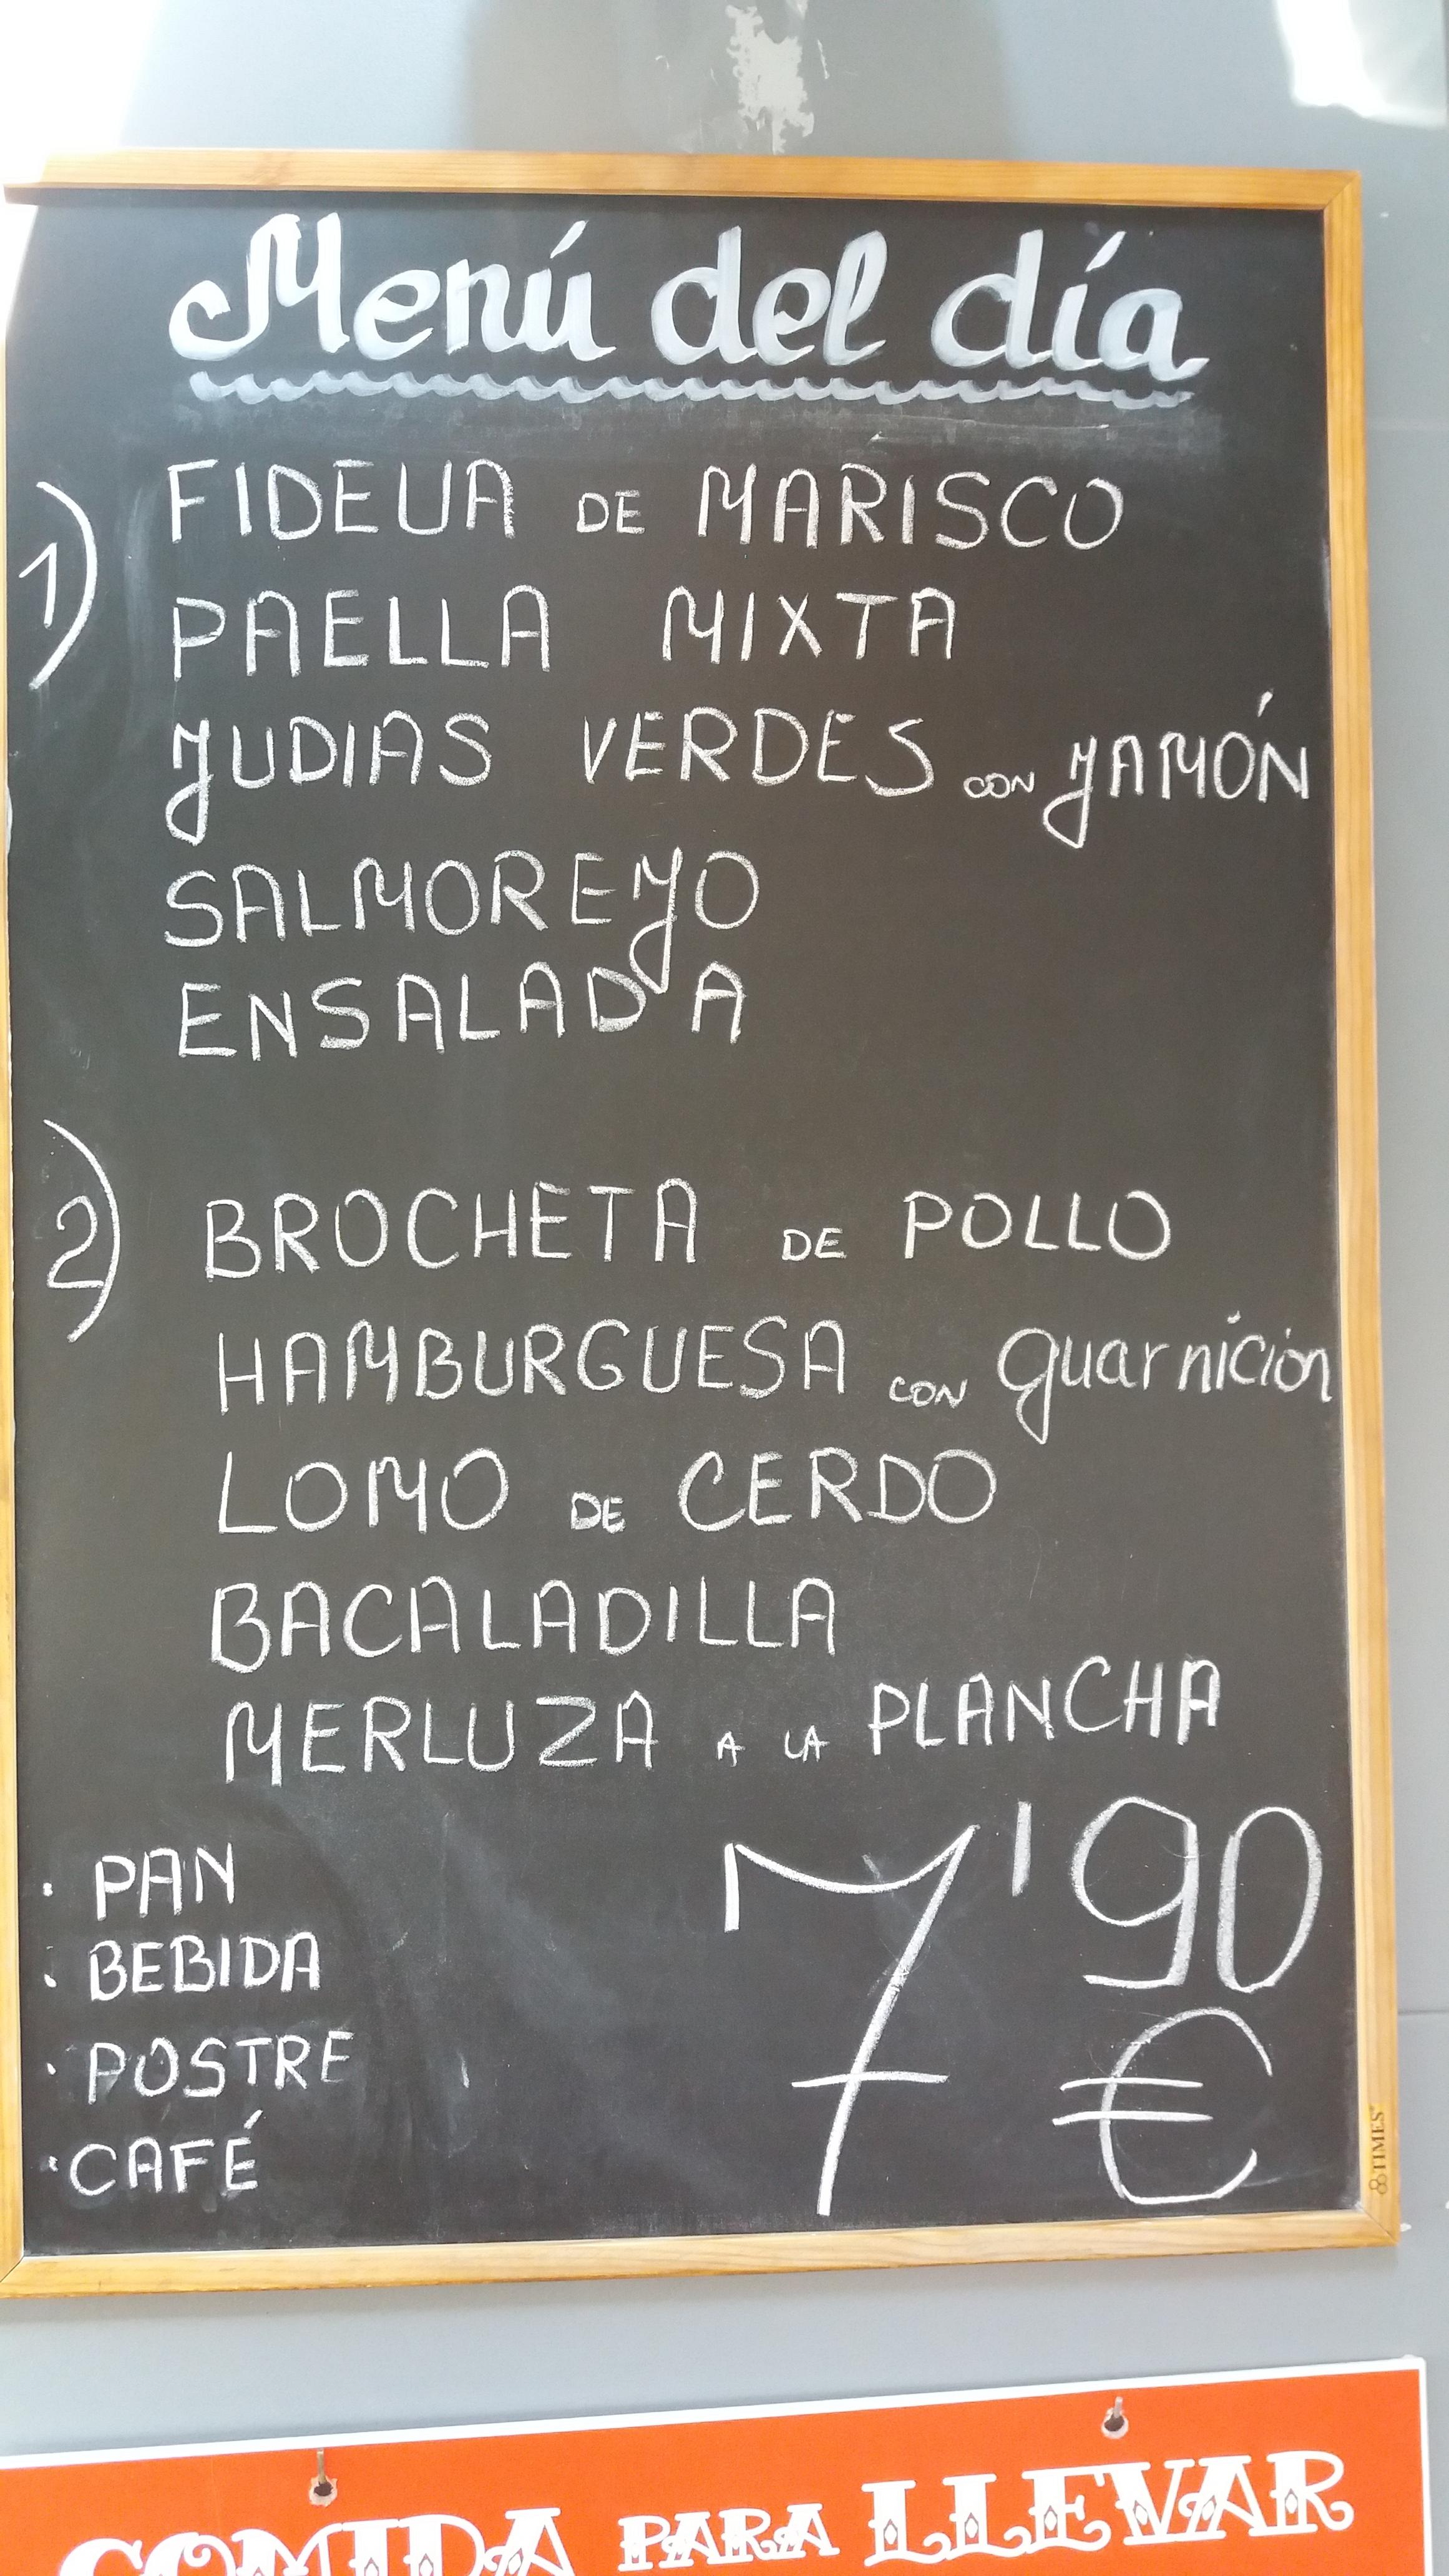 Menú del día
1) FIDEUA DE MARISCO
PAELLA MIXTA
JUDIAS VERDES CON JAMÓN
SALMOREJO
ENSALADA
2) BROCHETA DE POLLO
HAMBURGUESA CON guarnición
LOMO DE CERDO
BACALADILLA
MERLUZA A LA PLANCHA
· PAN
· BEBIDA
· POSTRE
· CAFÉ
7'90
€
TIMES
COMIDA PARA LLEVAR